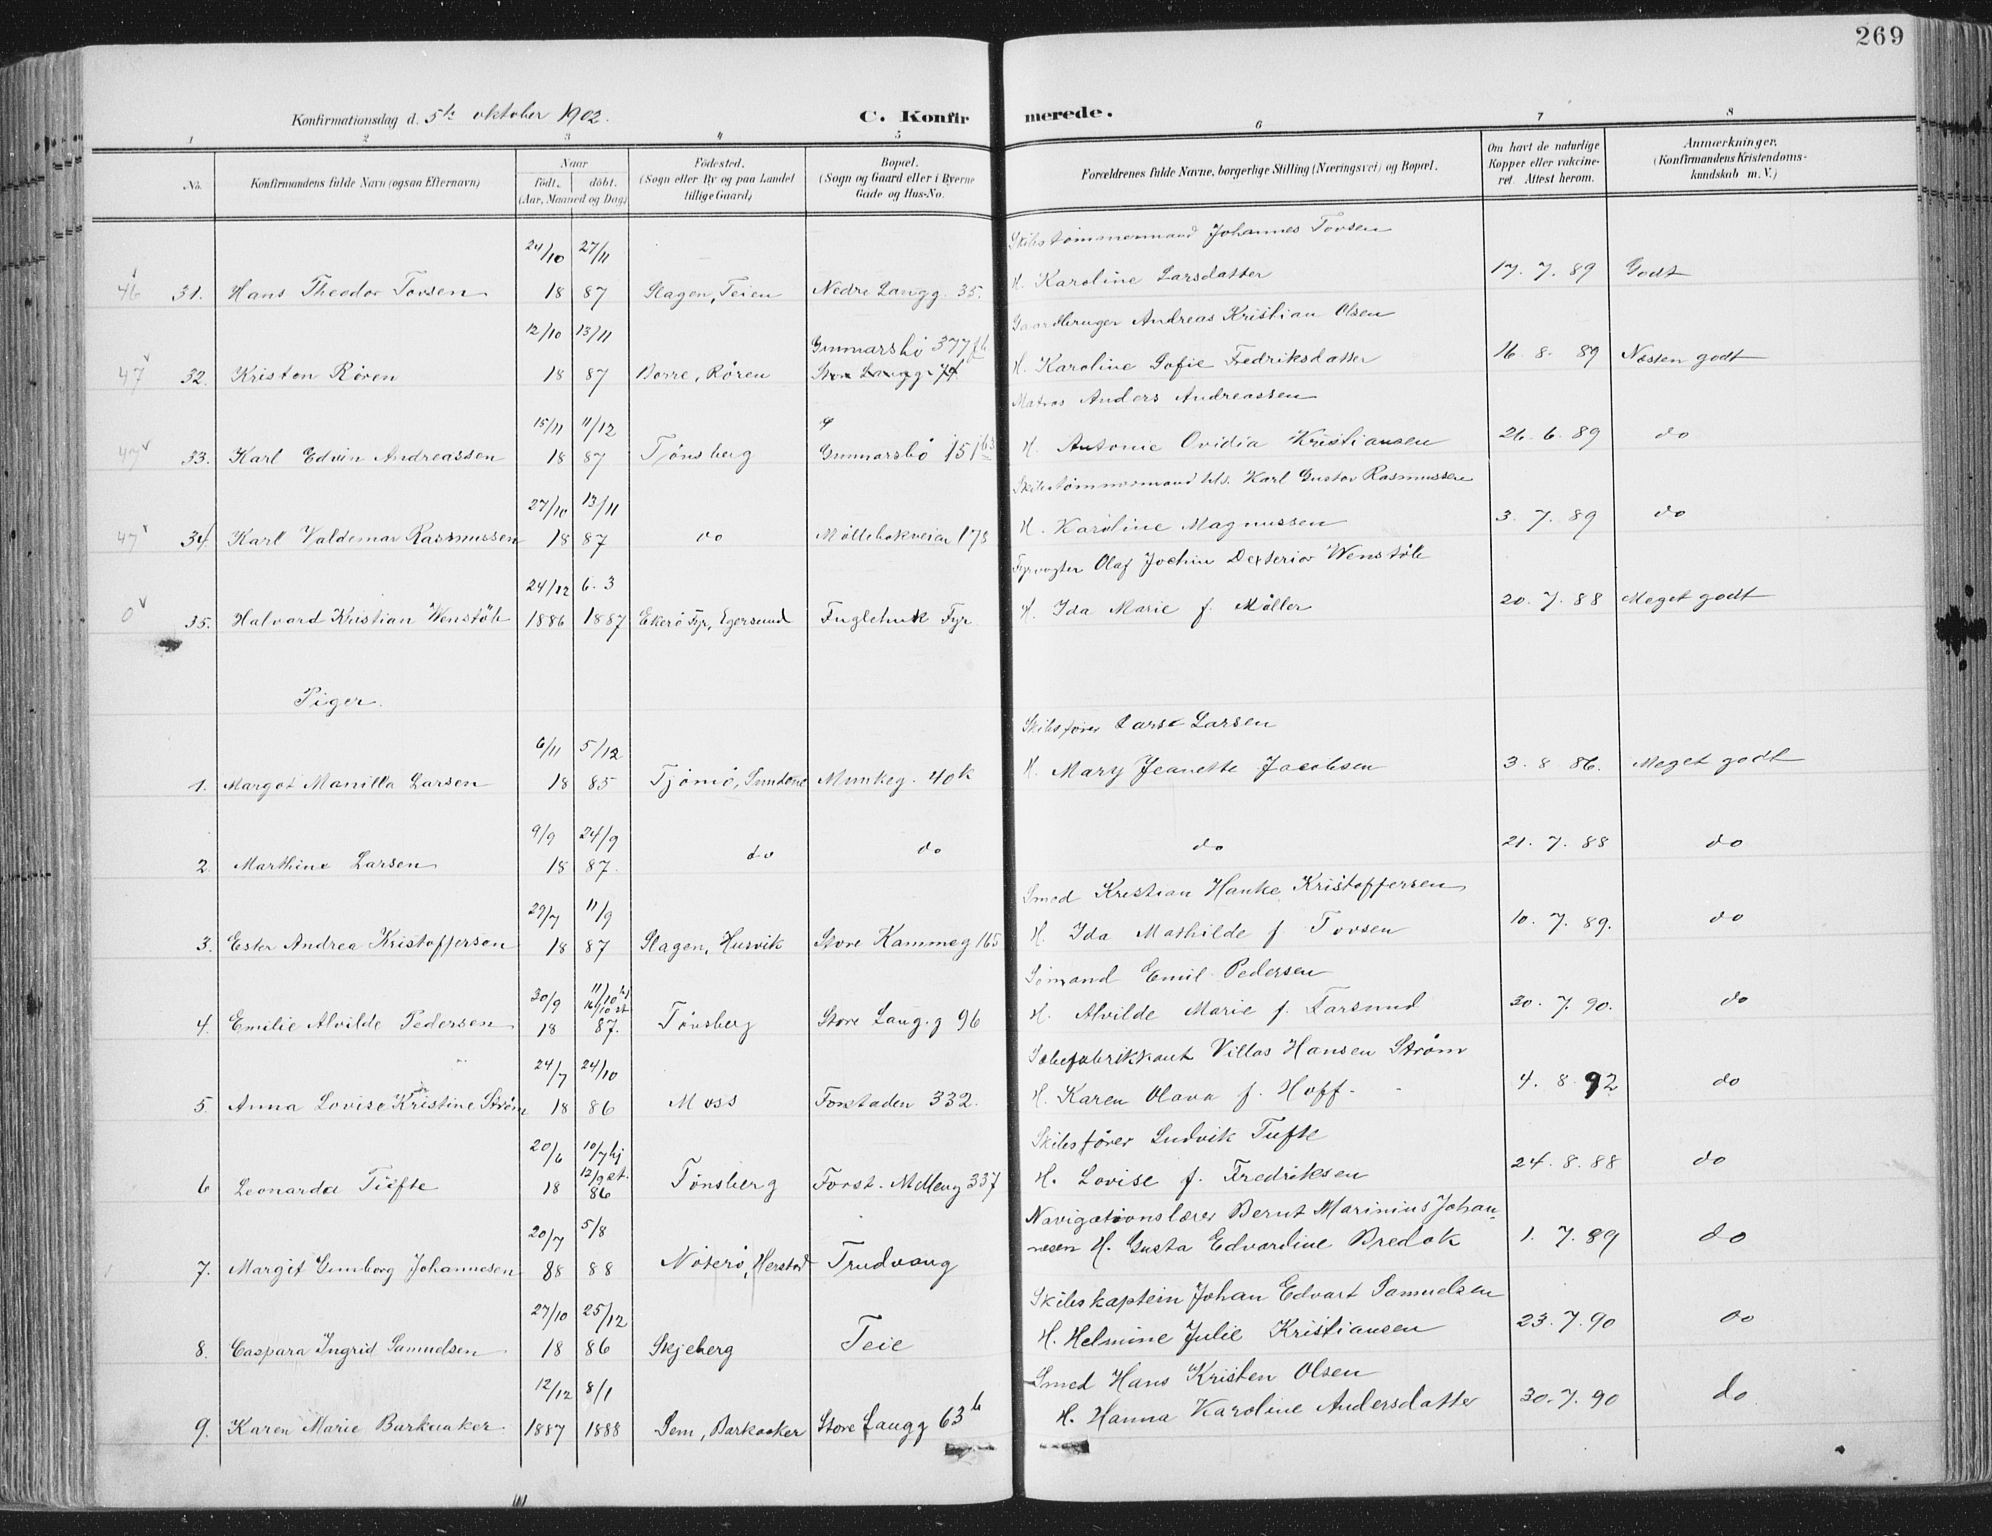 269
Konfirmationsdag d. 5te oktober 1902. C. Konfir merede.
1 2 3 4 5 6 7 8
No. Konfirmandens fulde Navn (ogsaa Efternavn) Naar født. døbt. (Aar, Maaned og Dag) Fødested. (Sogn eller By og paa Landet tillige Gaard) Bopæl. (Sogn og Gaard eller i Byerne Gade og Hus-No. Forældrenes fulde Navne, borgerlige Stilling (Næringsvei) og Bopæl. Om havt de naturlige Kopper eller vakcineret. Attest herom. Anmærkninger, (Konfirmandens Kristendomskundskab m. V.)
24/10 27/11 Skibstømmermand Johannes Torsen
46 31. Hans Theodor Torsen 18 87 Slagen, Teien Nedre Langg. 35. H. Karoline Larsdatter 17. 7. 89 Godt
12/10 13/11 Gunnarsbø 377 Gaardbruger Andreas Kristian Olsen
47 32. Kristen Røren 18 87 Borre, Røren Store Langg. H. Karoline Sofie Fredriksdatter 16. 8. 89 Næsten godt
15/11 11/12 Matros Anders Andreassen
47 33. Karl Edvin Andreassen 18 87 Tønsberg Gunnarsbø 151 H. Antonie Ovidia Kristiansen 26. 6. 89 do
27/10 13/11 Skibstømmermand Karl Gustav Rasmussen
47 34 Karl Valdemar Rasmussen 18 87 do Møllebakveien 173 H. Karoline Magnussen 3. 7. 89 do
24/12 6. 3 Fyrvogter Olaf Jochim Dexterior Wenstøb
0 35. Halvard Kristian Wenstøb 1886 1887 Ekerø Fyr, Egersund Fuglehuk Fyr H. Ida Marie f. Møller 20. 7. 88 Meget godt
Piger.
6/11 5/12 Skibsfører Lars Larsen
1. Margot Manilla Larsen 18 85 Tjømø, Sundene Munkeg. 40k H. Mary Jeanette Jacobsen 3. 8 86. Meget godt
9/9 24/9
2. Marthine Larsen 18 87. do do do 21. 7. 88 do
29/7 11/9 Smed Kristian Hanke Kristoffersen
3. Ester Andrea Kristoffersen 18 87 Slagen, Husvik Store Kammeg 165 H. Ida Mathilde f Torsen 10. 7. 89. do
30/9 11/10 hj 16/10 st. Sømand Emil Pedersen
4. Emilie Alvilde Pedersen 18 87. Tønsberg Store Lang.g 96 H. Alvilde Marie f. Farsund 30. 7. 90. do
24/7 24/10 Sæbefabrikkant Villas Hansen Strøm
5. Anna Lovise Kristine Strøm 18 86 Moss Forstaden 332. H. Karen Olava f. Hoff 4. 8. 92 do
20/6 10/7 hj 12/9 st. Skibsfører Ludvik Tufte
6 Leonarda Tufte 18 86 Tønsberg Forst. 337 H. Lovise f. Fredriksen 24. 8. 88 do
20/7 5/8 Navigationslærer Bernt Marinius Johan-
7. Margit Gunborg Johannesen 88 88 Nøterø, Herstad Trudvang nesen H. Gusta Edvardine Bredok 1. 7. 89 do
27/10 25/12 Skibskaptein Johan Edvart Samuelsen
8. Caspara Ingrid Samuelsen 18 86 Skjeberg Teie H. Helmine Julie Kristiansen 23. 7. 90 do
12/12 8/1 Smed Hans Kristen Olsen
9. Karen Marie Barkaaker 1887 1888 Sem, Barkaaker Store Langg 63b H. Hanna Karoline Andersdatter 30. 7. 90 do